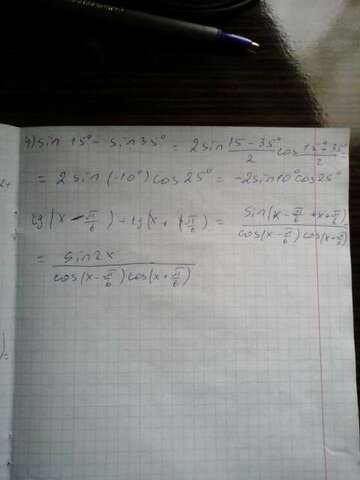 4) sin 15° - sin 35° = 2 sin (15 - 35°)/2 cos (15 + 35°)/2 =
= 2 sin (-10°) cos 25° = -2 sin 10° cos 25°
tg(x - π/6) + tg(x + π/6) = sin(x - π/6 + x + π/6) / cos(x - π/6) cos(x + π/6)
= sin 2x / cos(x - π/6) cos(x + π/6)